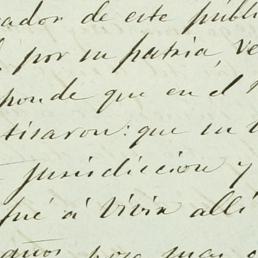 ador de este públi
por su patria, Ve
ponde que en el
tisaron: que su
jurisdiccion y
fué á vivir allí
años poco mas